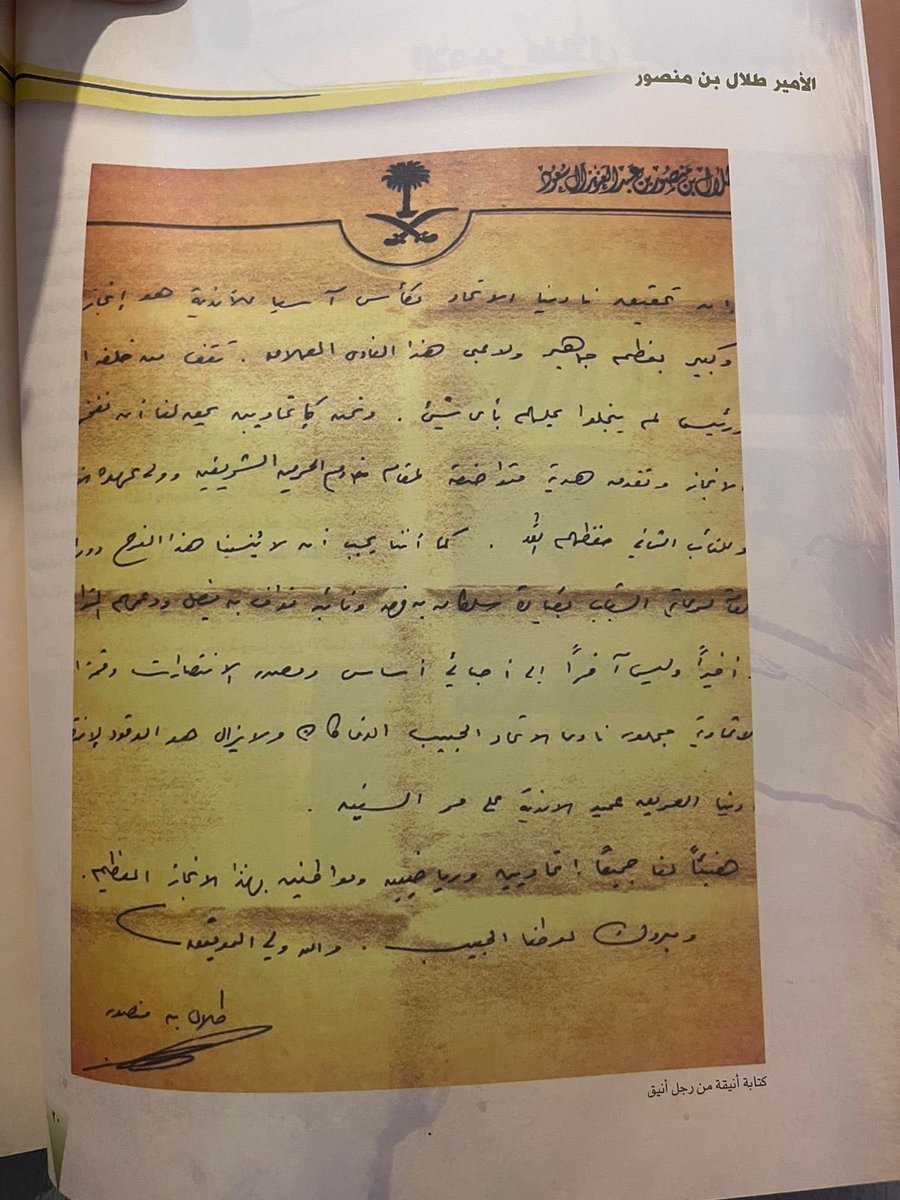 الأمير طلال بن منصور
طلال بن منصور بن عبدالعزيز آل سعود
إن تحقيق نادينا الاتحاد لكأس آسيا للأندية هو إنجاز
وكبير بعظم جماهير ولاعبي هذا النادي العملاق . تقف من خلفه ا
ورئيس لم يبخلوا عليهم بأي شيئ . ونحن كإتحاديين يحق لنا أن نفخر
الانجاز ونقدمه هدية متواضعة لمقام خادم الحرمين الشريفين وولي عهده
وللنائب الثاني حفظهم الله . كما أننا يجب أن لا ينسينا هذا الفرح دور
لرعاية الشباب بقيادة سلطان بن فهد ونائبه نواف بن فيصل ودعمهم
أخيراً وليس آخراً إلى أحبائي أساس ومصدر الانتصارات وقمة ا
الاتحادية جمهور نادي الاتحاد الحبيب الذي كان ولايزال هو الوقود
العريق عميد الاندية على مر السنين .
هنيئاً لنا جميعاً اتحاديين ورياضيين ومواطنين بهذا الانجاز العظيم .
ومبروك لوطننا الحبيب . والله ولي التوفيق
طلال بن منصور
كتابة أنيقة من رجل أنيق
٢٠